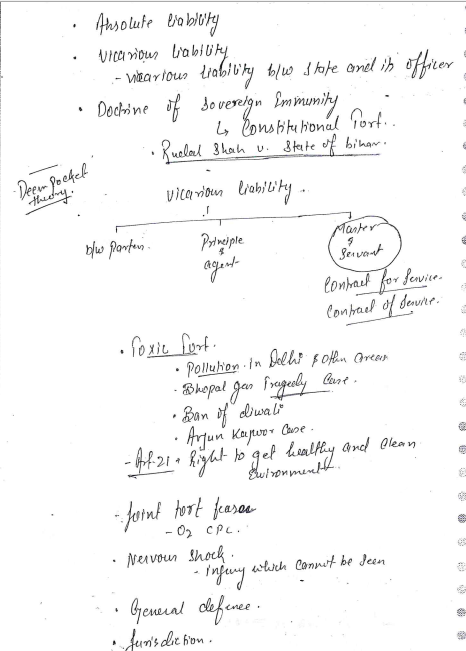 · Absolute liability
· Vicarious liability
- vicarious liability b/w State and its officer
· Doctrine of Sovereign Immunity
↳ Constitutional Tort..
· Rudal Shah v. State of bihar.
Deep pocket
theory.
vicarious liability..
b/w Partners. Principle & agent Master & Servant
Contract for Service.
Contract of Service.
· Toxic Tort.
· Pollution in Delhi & other areas
- Bhopal gas Tragedy Case.
· Ban of diwali
· Arjun Kapoor Case.
- Art-21 · Right to get healthy and Clean
Environment.
- Joint tort feasor
- O2 CPC.
· Nervous Shock.
- Injury which cannot be Seen
· General defence.
· Jurisdiction.